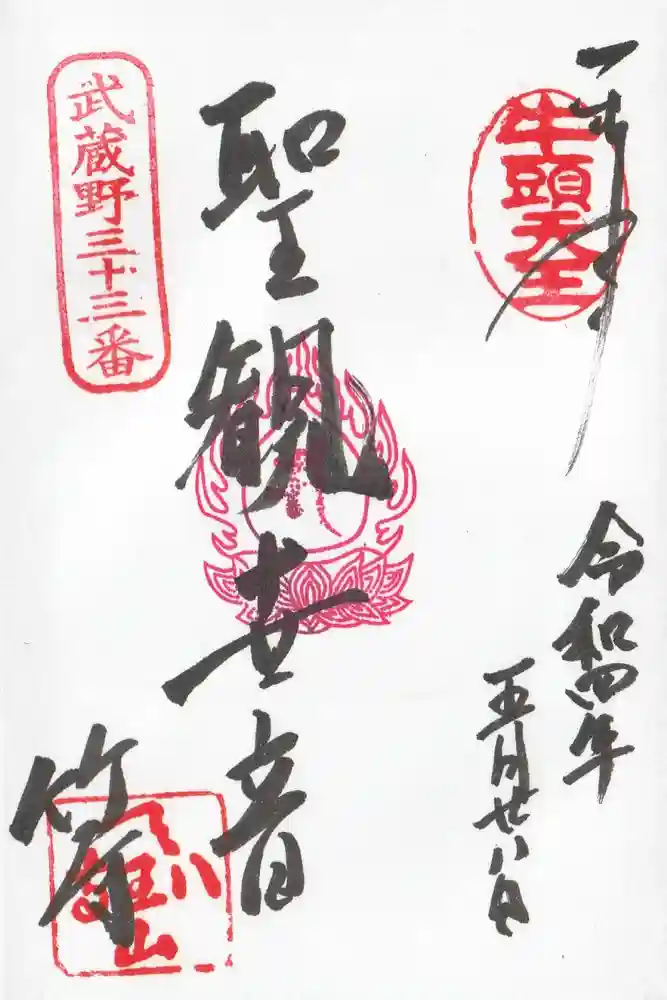 牛頭天王
令和四年
五月廿八日
聖観世音
武蔵野三十三番
竹寺